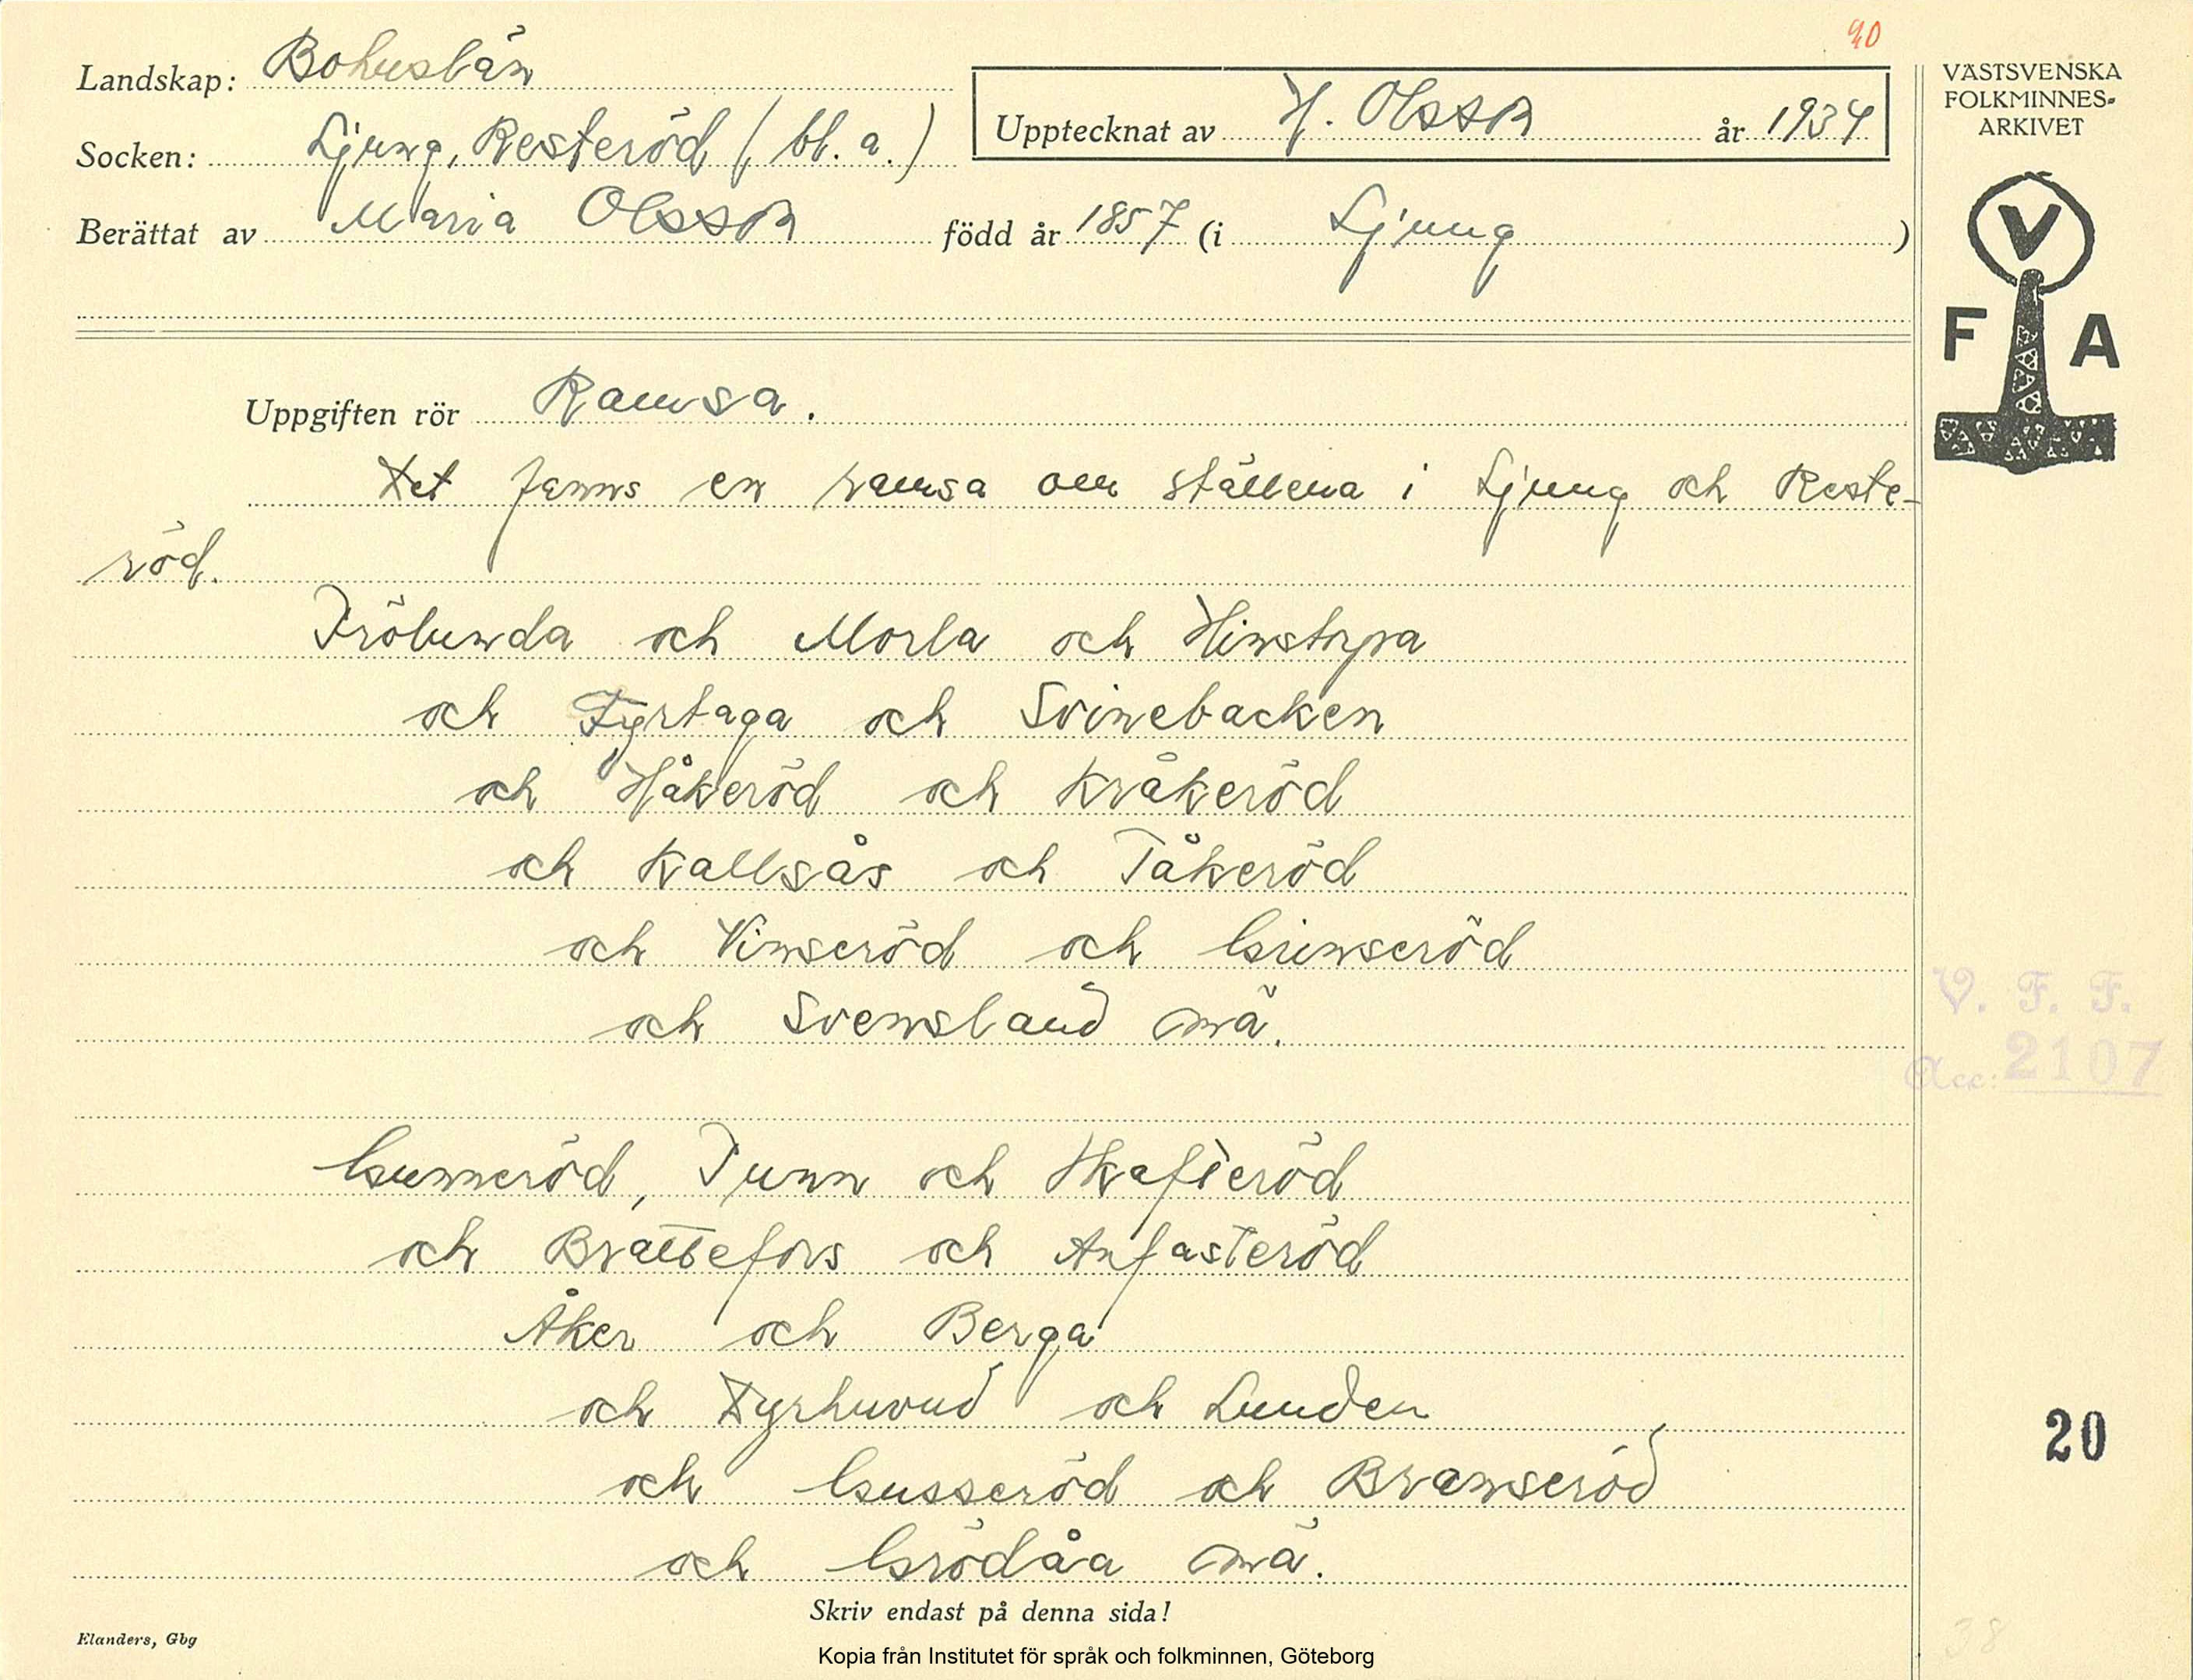 40
Landskap: Bohuslän
VÄSTSVENSKA
FOLKMINNES-
ARKIVET
Socken: Ljung, Resteröd (bl. a.)
Upptecknat av H. Olsson år 1934
Berättat av Maria Olsson född år 1857 (i Ljung )
V
F A
Uppgiften rör Ramsa.
Det fanns en ramsa om ställena i Ljung och Reste-
röd.
Frölunda och Morla och Hinstorpa
och Fyrtaga och Svinebacken
och Håkeröd och Kråkeröd
och Kallsås och Tåkeröd
och Vinseröd och Grinseröd
och Svensland mä.
V. F. F.
Acc: 2107
Gunneröd, Funn och Skafteröd
och Brattefors och Anfasteröd
Åker och Berga
och Dyrhuvud och Lunden
20
och Gusseröd och Branseröd
och Grödåa mä.
Skriv endast på denna sida!
Elanders, Gbg
38
Kopia från Institutet för språk och folkminnen, Göteborg